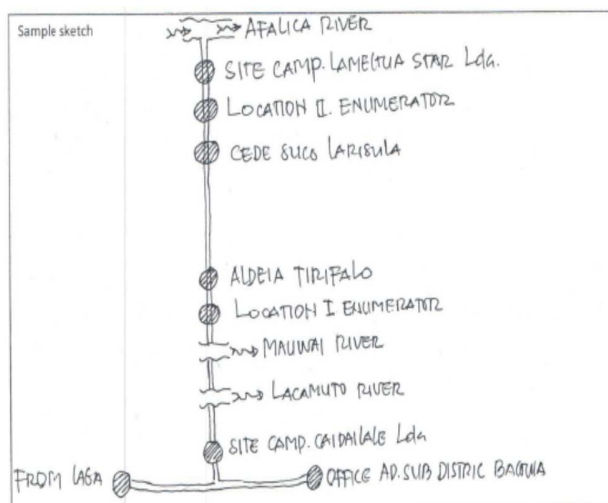 Sample sketch
AFALICA RIVER
SITE CAMP. LAMELTUA STAR Lda.
LOCATION II. ENUMERATOR
CEDE SUCO LARISULA
ALDEIA TIRIFALO
LOCATION I ENUMERATOR
MAUWAI RIVER
LACAMUTO RIVER
SITE CAMP. CAIDAILALE Lda
FROM LAGA
OFFICE AD. SUB DISTRIC BAGUIA